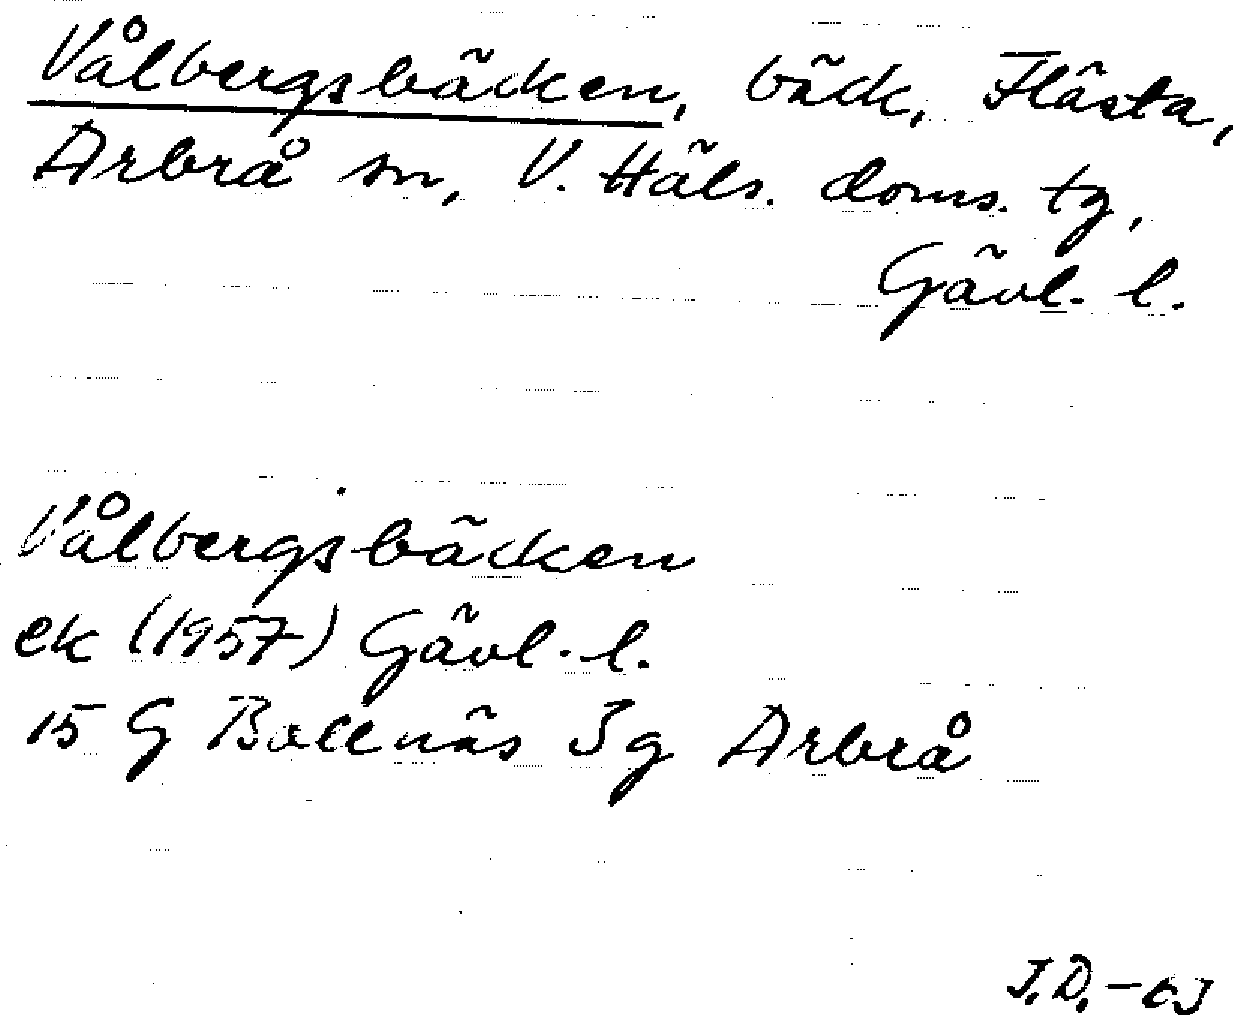 Vålbergsbäcken, bäck, Flästa,
Arbrå sn, V. Häls. doms. tg,
Gävl. l.
Vålbergsbäcken
ek (1957) Gävl. l.
15 G Bollnäs 3g Arbrå
J.D.-63